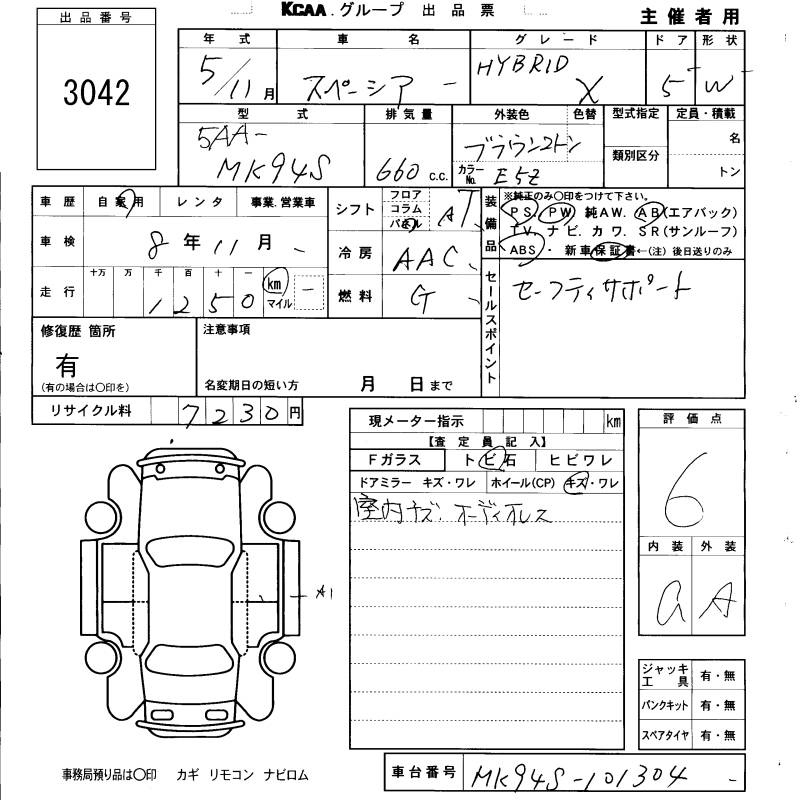 KCAA.グループ 出品票
主催者用
出品番号
3042
年式 車名 グレード ドア 形状
5/11月 スペーシアー HYBRID X 5 W
型式 排気量 外装色 色替 型式指定 定員・積載
5AA-
MK94S 660 c.c. ブラウン2トン カラーNo. E5Z 類別区分 名
トン
車歴 自家用 レンタ 事業.営業車
シフト フロア コラム パネル AT
車検 8年11月
冷房 AAC
走行 十万 万 千 百 十 一 km マイル
1250
燃料 G
装備品 ※純正のみ〇印をつけて下さい。
PS. PW 純AW. AB(エアバック)
TV. ナビ. カワ. SR(サンルーフ)
ABS・新車保証書←(注)後日送りのみ
セールスポイント セーフティサポート
修復歴 箇所
有
(有の場合は〇印を)
注意事項
名変期日の短い方 月 日まで
リサイクル料 7230円
現メーター指示 km
【査定員記入】
Fガラス トビ石 ヒビワレ
ドアミラー キズ・ワレ ホイール(CP) キズ・ワレ
室内キズ. オーディオレス
評価点
6
内装 外装
a A
A1
ジャッキ工具 有・無
パンクキット 有・無
スペアタイヤ 有・無
事務局預り品は〇印 カギ リモコン ナビロム
車台番号 MK94S-101304